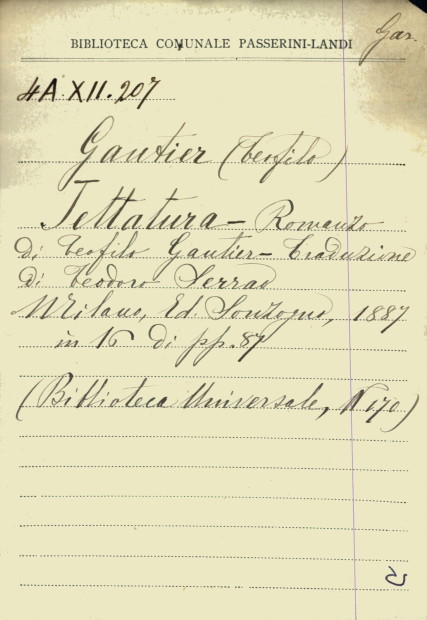 Gar.
BIBLIOTECA COMUNALE PASSERINI-LANDI
4A. XII. 207
Gautier (Teofilo)
Jettatura - Romanzo
di Teofilo Gautier - Traduzione
di Teodoro Serrao
Milano, Ed. Sonzogno, 1887
in 16 di pp. 87
(Biblioteca Universale, N 170)